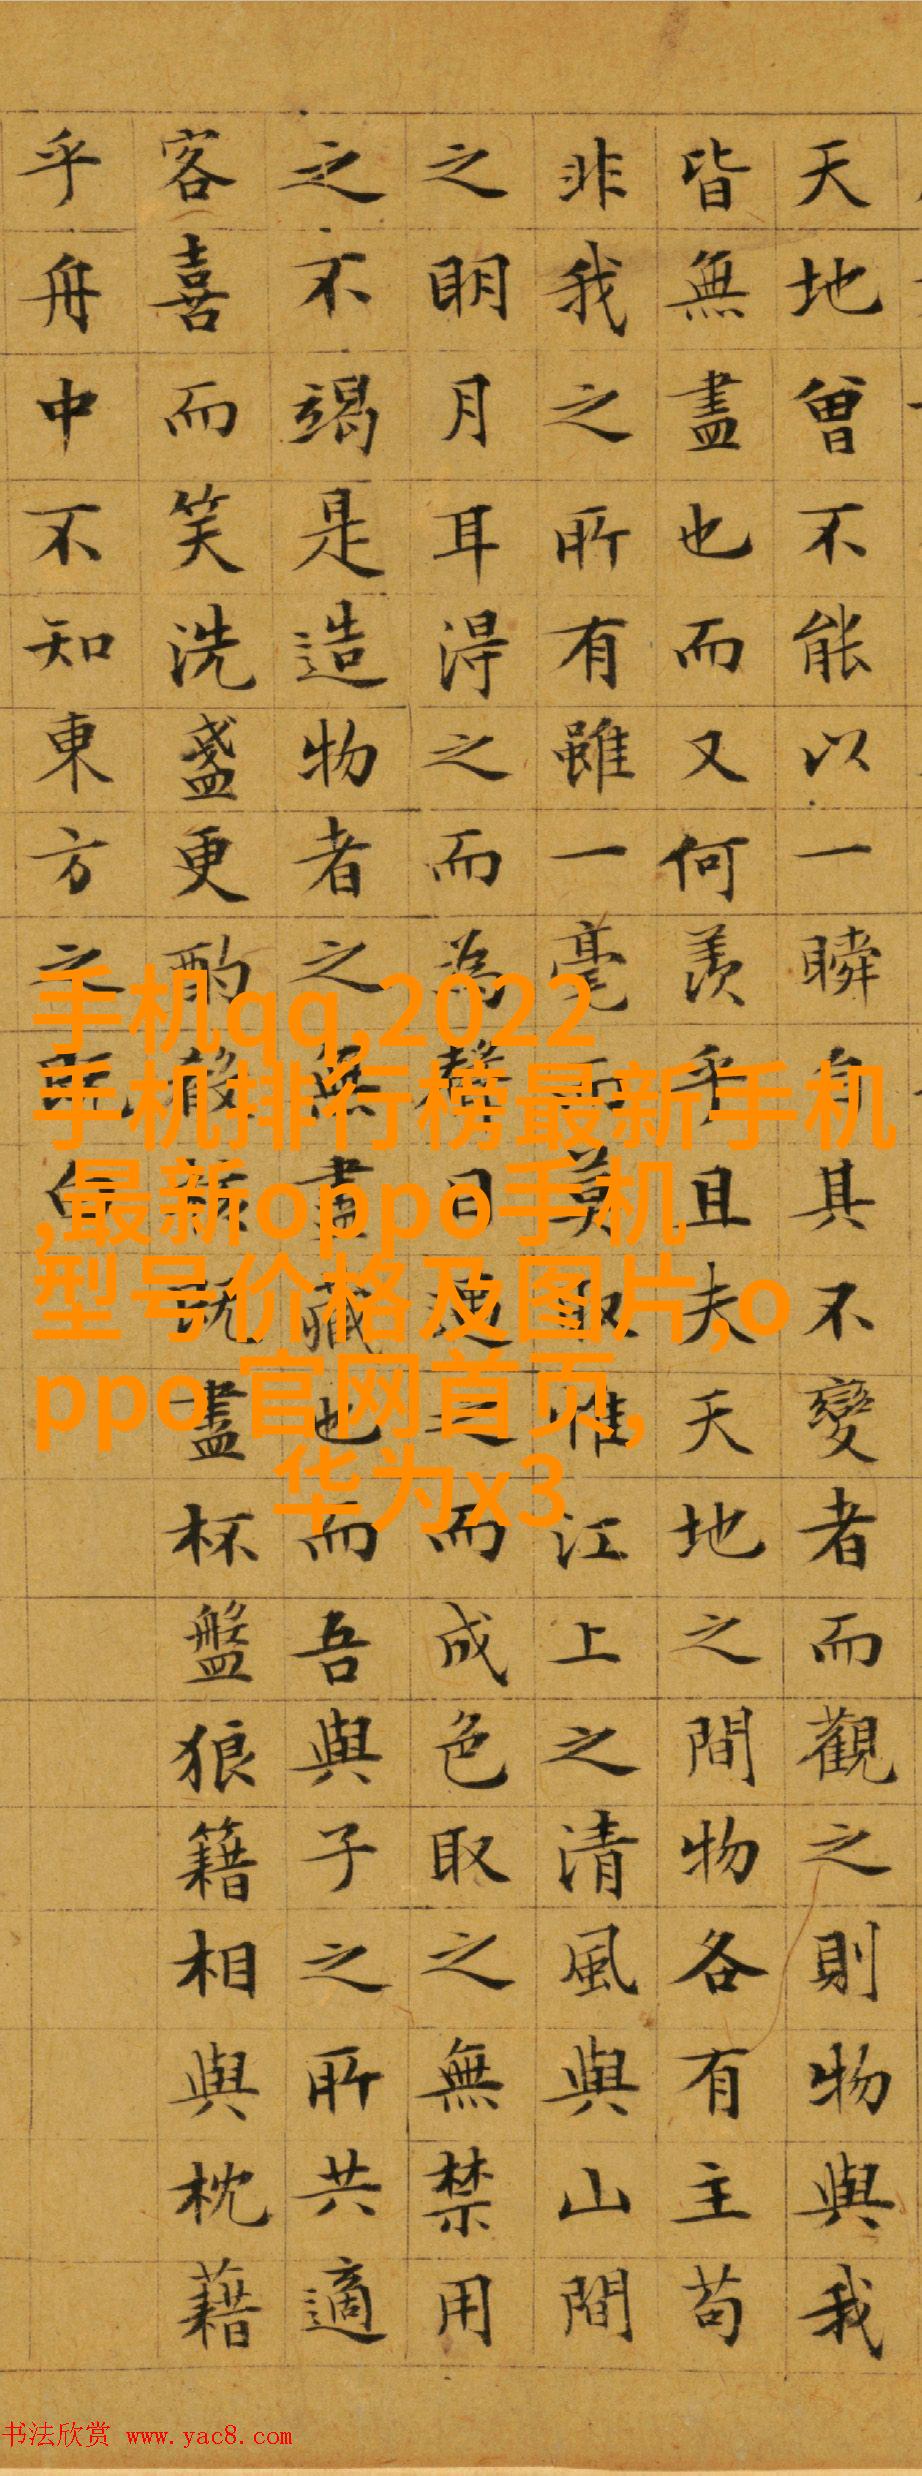 天地曾不能以一瞬自其不變者而觀之則物與我
皆無盡也而又何羨乎且夫天地之間物各有主苟
非我之所有雖一毫而莫取惟江上之清風與山間
之明月耳得之而為聲目遇之而成色取之無禁用
之不竭是造物者之無盡藏也而吾與子之所共適
客喜而笑洗盞更酌殽核既盡杯盤狼籍相與枕藉
乎舟中不知東方之既白
手机qq,2022
手机排行榜最新手机
,最新oppo手机
型号价格及图片,o
ppo 官网首页,
华为x3
书法欣赏 www.yac8.com